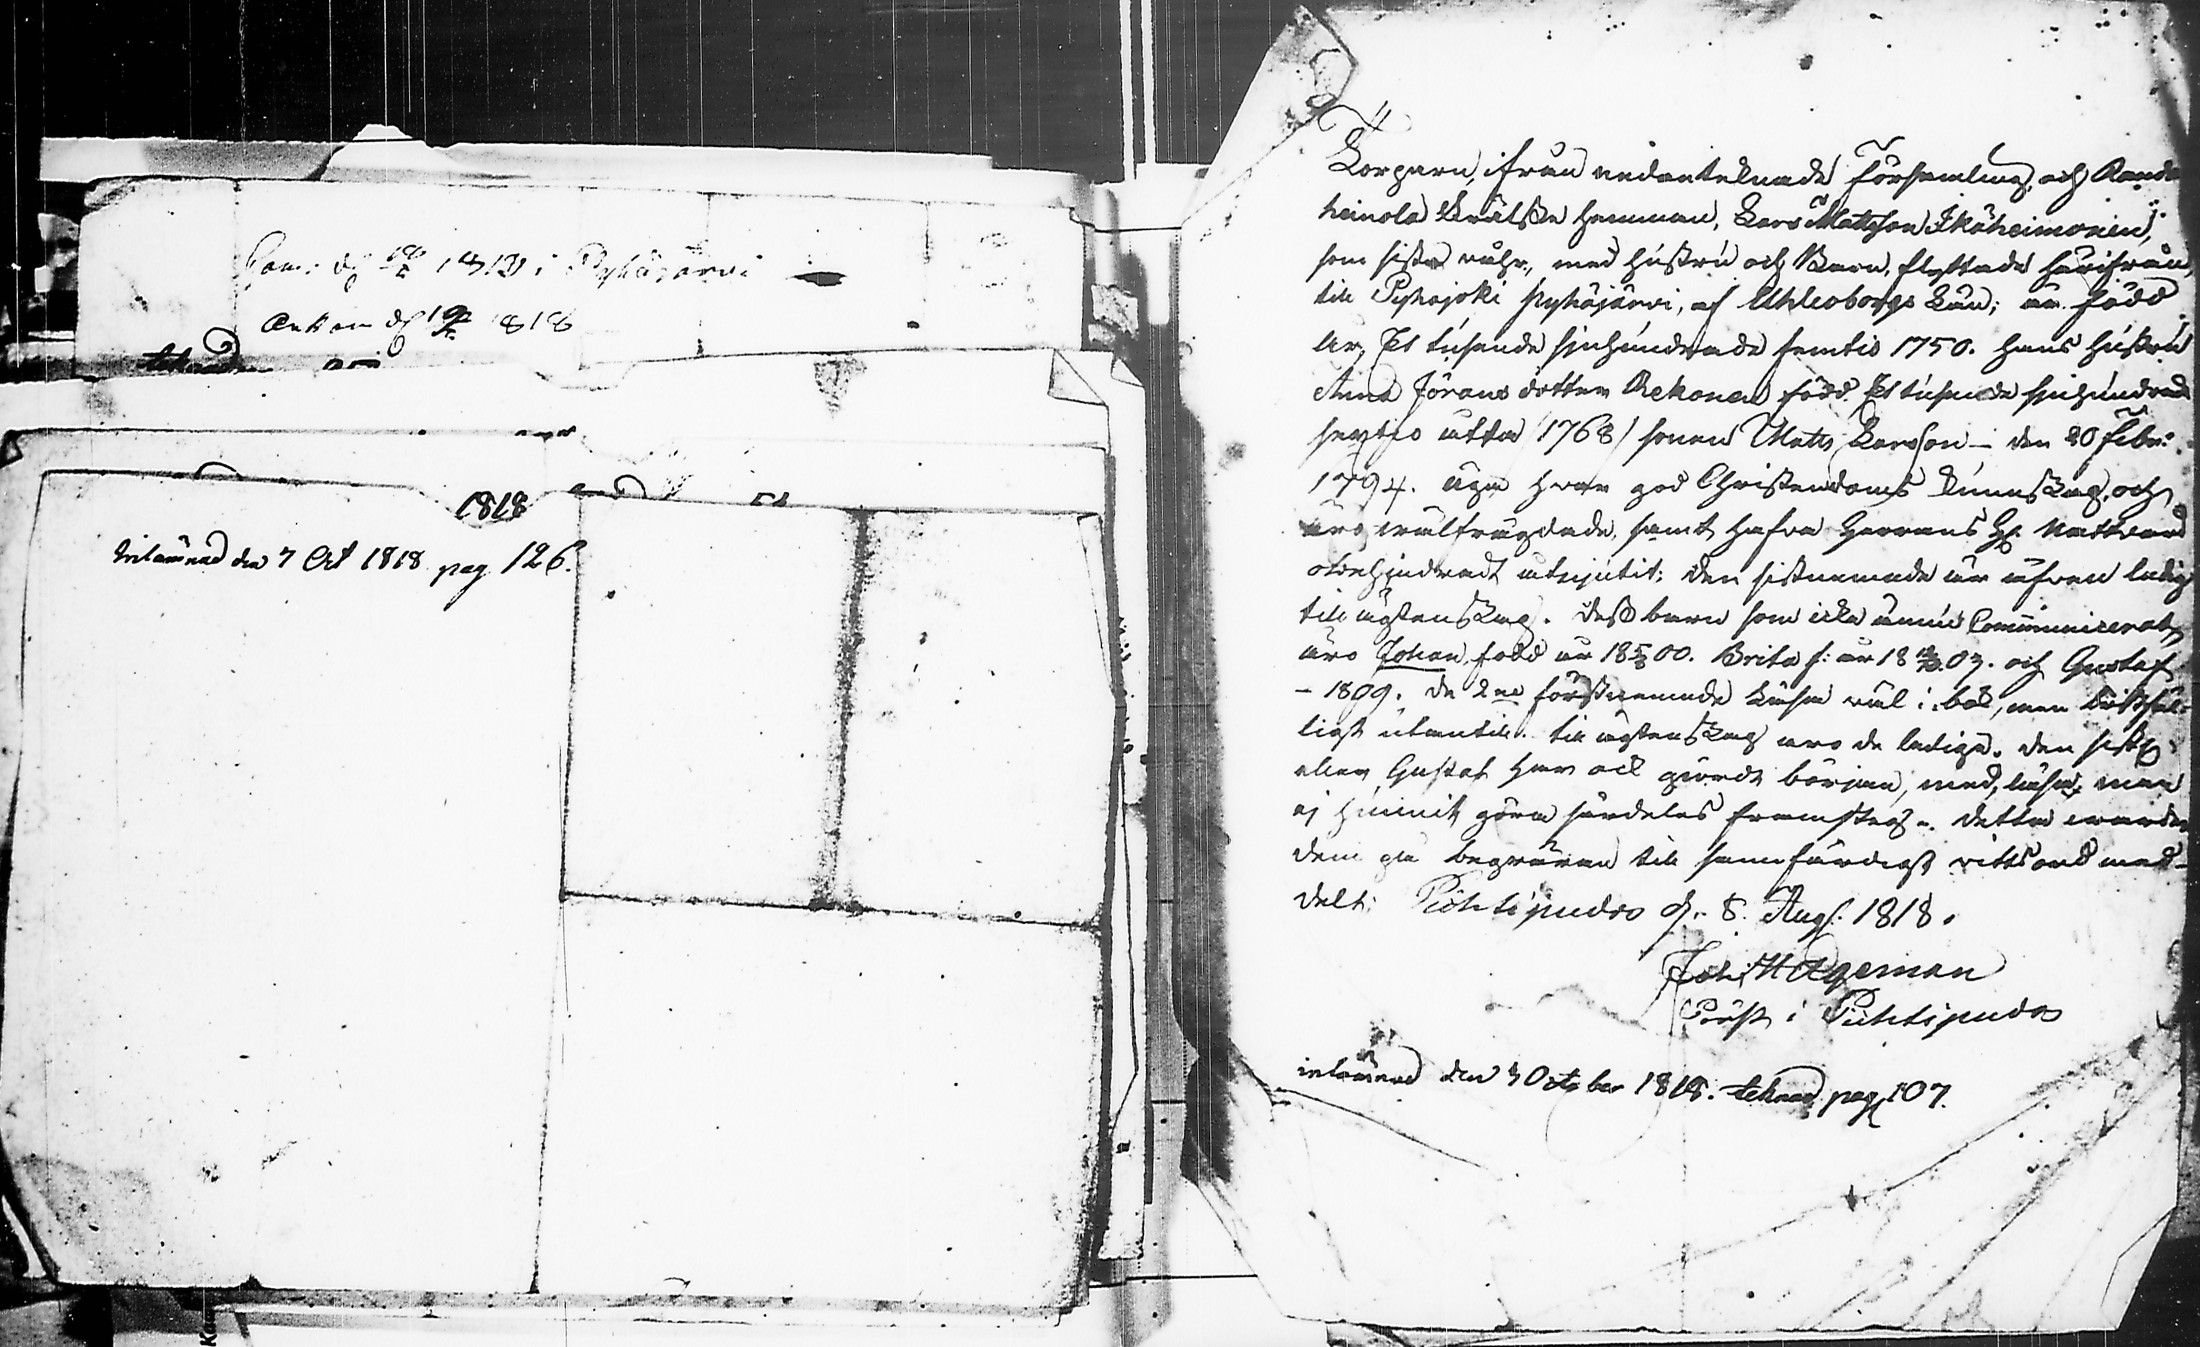 Com: d. 1818 i Pyhäjärvi
Ankom d. 1818
1818
Inlämnad den 7 Oct 1818 pag 126.
Torparn, ifrån nedanteknade Församling, och Randa
heinola Skatte Hemman, Lars Mattsson Ikäheimonen,
som sista våhr, med hustru och Barn, flyttade härifrån
till Pyhajoki Pyhäjärvi, af Uhleoborgs Län; är född
År, Et tusende sjuhundrade femtio 1750. hans hustru
Anna Jörans dotter Rekonen född Et tusende sjuhundrade
sextio åtta (1768) sonen Matts Larsson – den 20 Febr:
1794. äga hvar god Christendoms kunskap, och
äro välfrägdade, samt hafva Herrans H. Nattvard
obehindradt utnjutit: den sistnemnde är äfven ledig
till ägtenskap. Dess barn som icke ännu Communicerat,
äro Johan, född år 18 5/8 00. Brita f: år 18 07. och Gustaf
– 1809. de 2ne förstnemnde läsa väl i bok, men
ligt utantill. till ägtenskap äro de lediga. den sista
eller Gustaf har ock giordt början, med, läsa, men
ej hunnit göra särdeles framsteg. Detta varder
dem på begäran till sannfärdigt vittsord med-
delt: Pihtipudas d. 8. Aug: 1818.
Joh: Hageman
Präst i Pihtipudas
inlämnad den 7 October 1818. teknad pag 107.